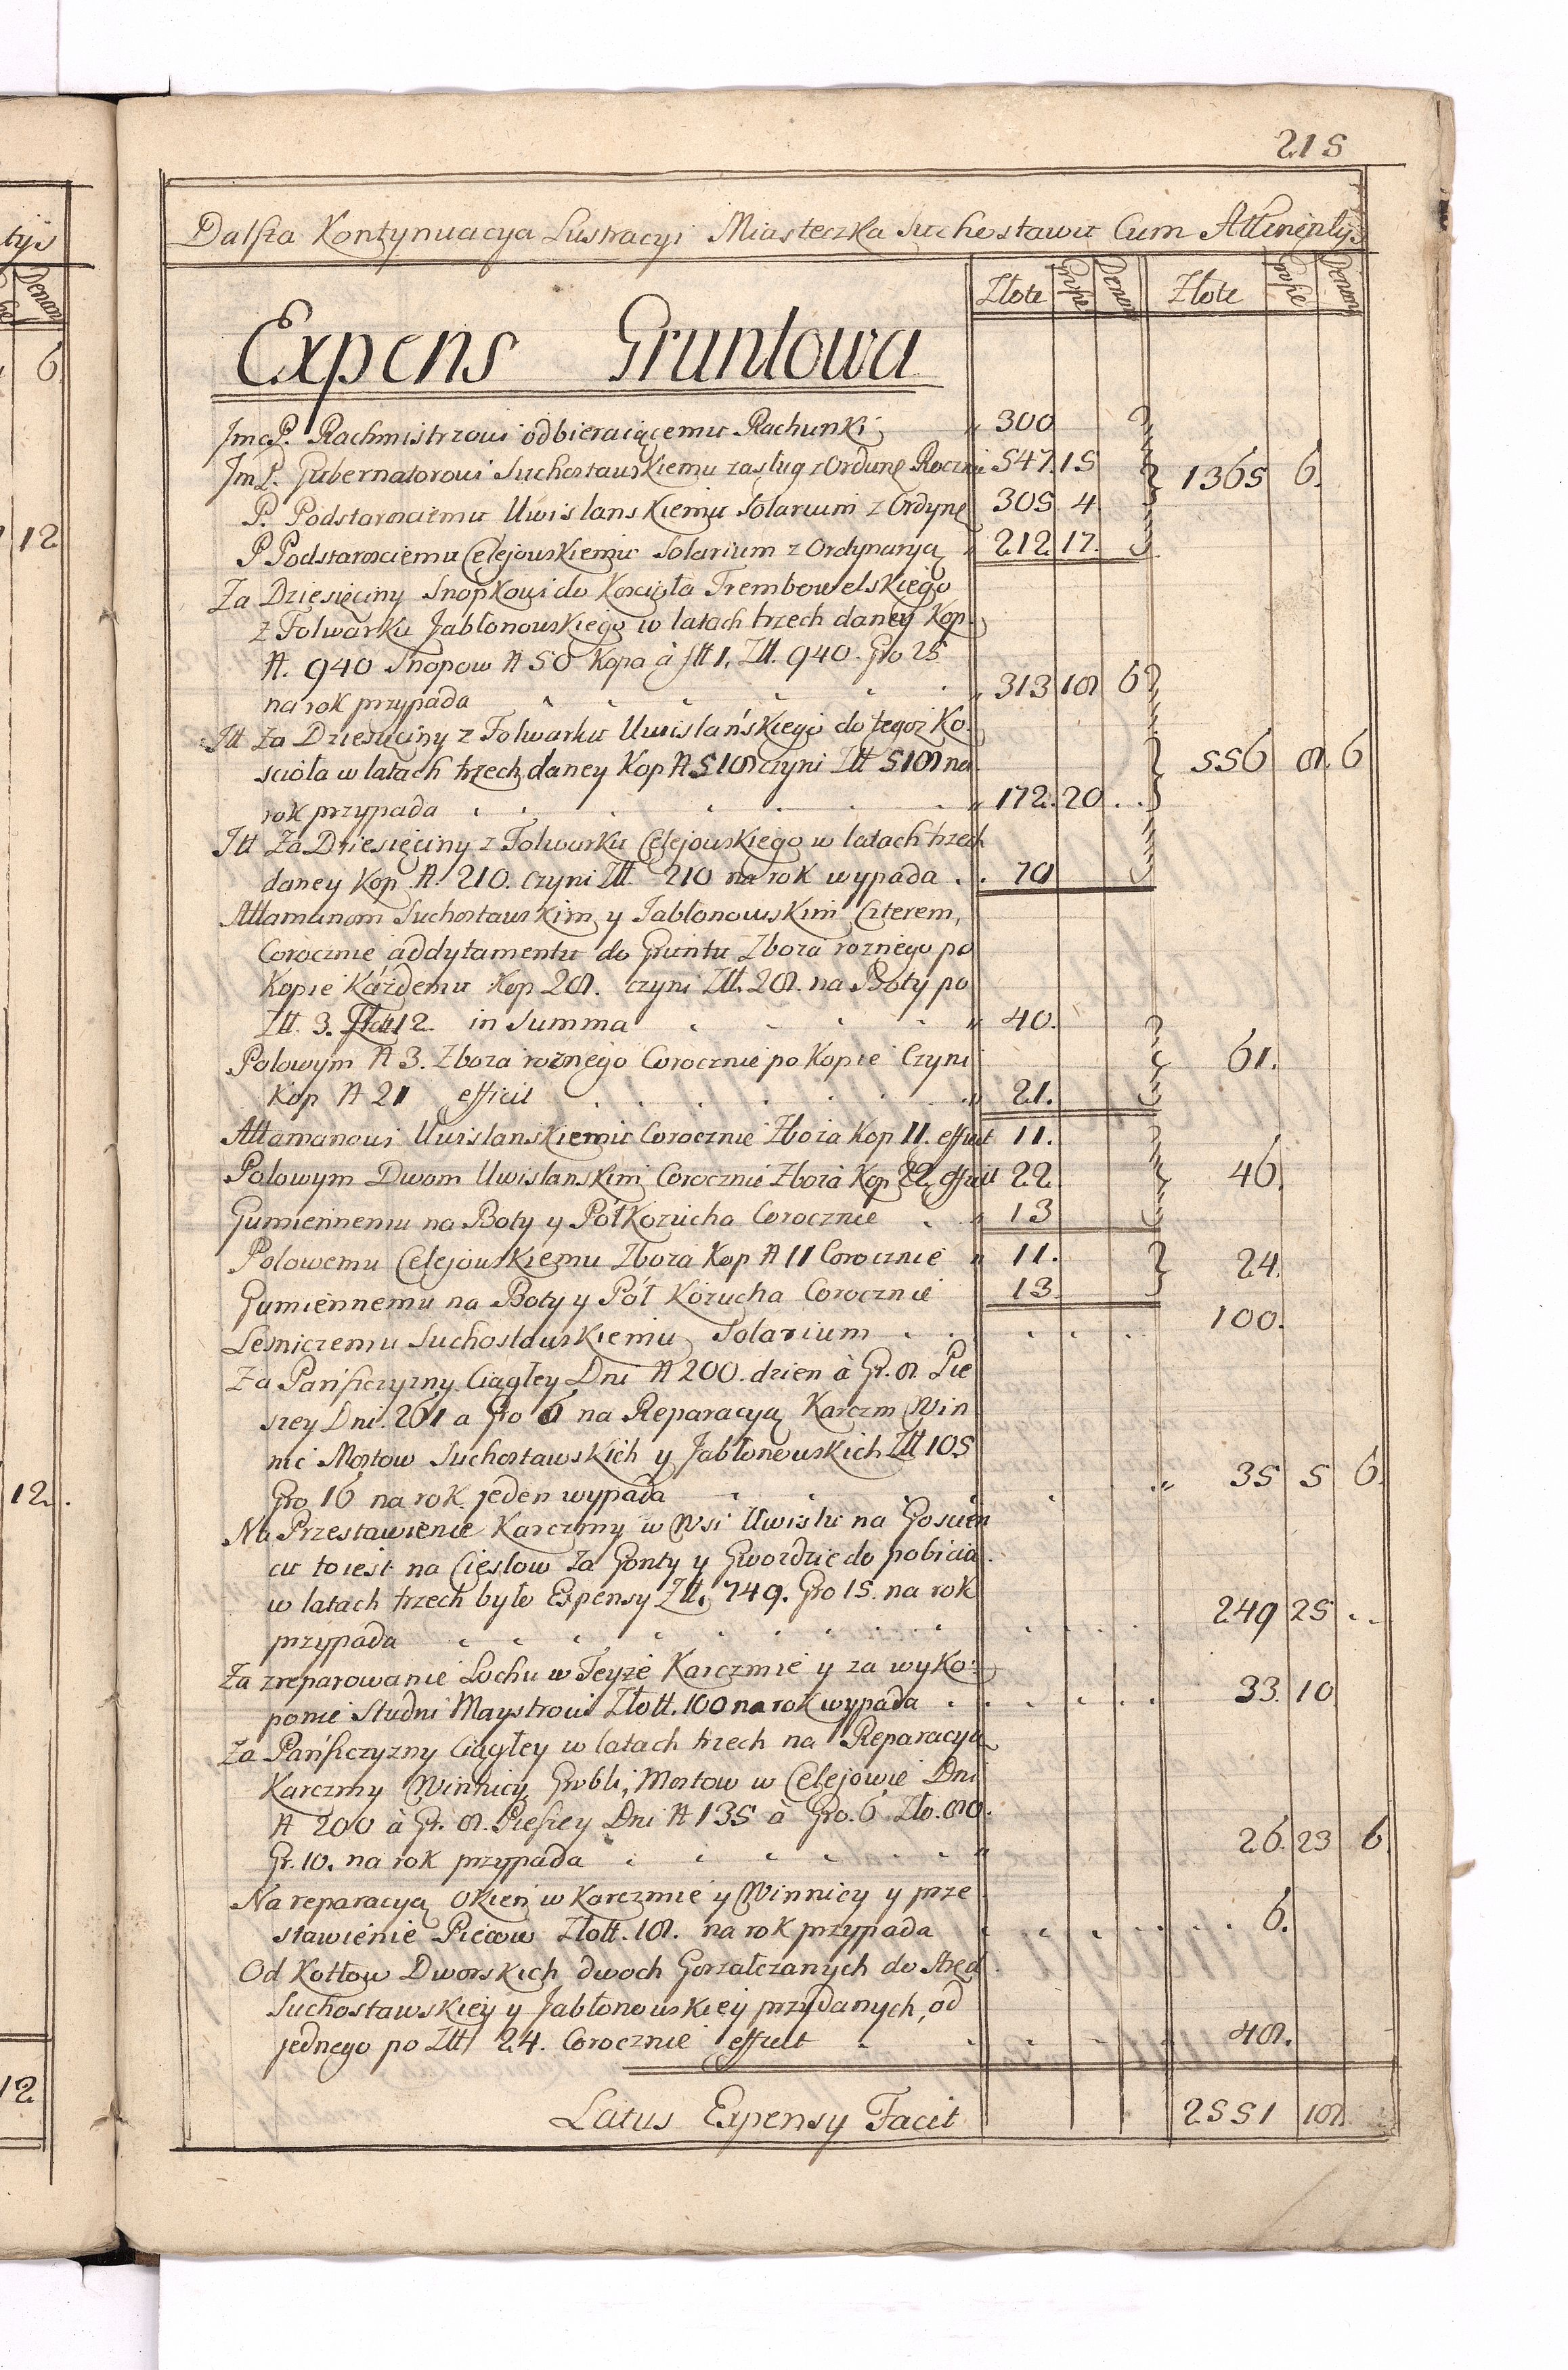 215
tys
Denary
6.
12
12.
12
Dalsza Kontynuacya Lustracyi Miasteczka Suchostawu Cum Attinentys
Złote Grosze Denary Złote Grosze Denary
Expens Gruntowa
JmcP. Rachmistrzowi odbieraiącemu Rachunki „ 300
JmP. Gubernatorowi Suchostawskiemu zasług z Ordynę Rocznie 547. 15 1365 6.
P. Podstarosciemu Uwislanskiemu Solarium z Ordynę 305 4
P Podstarosciemu Celejowskiemu Solarium z Ordynaryą „ 212 17.
Za Dziesięciny Snopkowi do Koscioła Trembowelskiego
z Folwarku Jabłonowskiego w latach trzech daney Kop.
N. 940 Snopow N 50 Kopa à Złł 1, Złł. 940. Gro 25
na rok przypada „ 313 18 6
Itt Za Dziesięciny z Folwarku Uwislańskiego do tegoż Ko:
scioła w latach trzech daney Kop N 518 czyni Złł 518 na 556 8. 6
rok przypada „ 172. 20 . .
Itt Za Dziesięciny z Folwarku Celejowskiego w latach trzech
daney Kop N. 210. czyni Złł. 210 na rok wypada . . 70
Attamanom Suchostawskim y Jabłonowskim Czterem,
Corocznie addytamentu do Gruntu Zboża rożnego po
Kopie Każdemu Kop 28. czyni Złł. 28. na Boty po
Złł. 3. 12. in Summa „ 40.
Polowym N 3. Zboża rożnego Corocznie po Kopie Czyni 61.
Kop N 21 efficit „ 21.
Attamanowi Uwislanskiemu Corocznie Zboża Kop 11. efficit 11.
Polowym Dwom Uwislanskim Corocznie Zboża Kop 22 efficit 22 46.
Gumiennemu na Boty y Pół Kożucha Corocznie . „ 13
Polowemu Celejowskiemu Zboża Kop N 11 Corocznie „ 11. 24.
Gumiennemu na Boty y Pół Kożucha Corocznie 13
Lesniczemu Suchostawskiemu Solarium . . . . . . 100.
Za Pańszczyzny Ciągłey Dni N 200. dzien à Gr. 8. Pie
szey Dni. 261 a Gro 6 na Reparacyą Karczm Win
nic Mostow Suchostawskich y Jabłonowskich Złł 105
Gro 16 na rok jeden wypada . . . . „ 35 5 6.
Na Przestawienie Karczmy w Wsi Uwisłu na Goscien
cu toiest na Cieslow Za Gonty y Gwozdzie do pobicia.
w latach trzech było Expensy Złł. 749. Gro 15. na rok
przypada . . . . . . . . 249 25 . .
Za zreparowanie Lochu w Teyże Karczmie y za wyko:
panie Studni Maystrowi Złott. 100 na rok wypada . . . . . . 33. 10
Za Pańszczyzny Ciągłey w latach trzech na Reparacyą
Karczmy Winnicy Grobli, Mostow w Celejowie Dni
N 200 à Gr. 8. Pieszey Dni N 135 a Gro. 6 Zło. 80.
Gr. 10. na rok przypada . . . . . . „ 26. 23 6.
Na reparacyą Okien w Karczmie y Winnicy y prze
stawienie Piecow Złott. 18. na rok przypada . . . . . . . 6.
Od Kotłow Dworskich dwoch Gorzałczanych do Aręd.
Suchostawskiey y Jabłonowskiey przydanych, od
jednego po Złł 24. Corocznie efficit . . . . 48.
Latus Expensy Facit 2551 18.